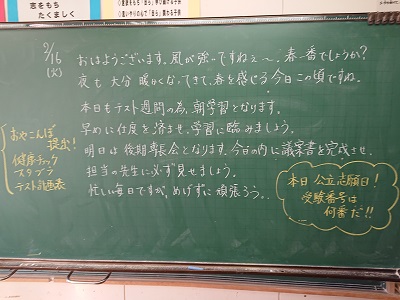 志をもち
たくましく
2/16
(火)
おはようございます。風が強いですねぇ〜。春一番でしょうか?
夜も大分暖かくなってきて、春を感じる今日この頃ですね。
本日もテスト週間の為、朝学習となります。
早めに仕度を済ませ、学習に臨みましょう。
明日は後期専長会となります。今日の内に議案書を完成させ、
担当の先生に必ず見せましょう。
忙しい毎日ですが、めげずに頑張ろう。
提出!
健康チェック
スタプラ
テスト計画表
本日公立志願日!
受験番号は
何番だ!!